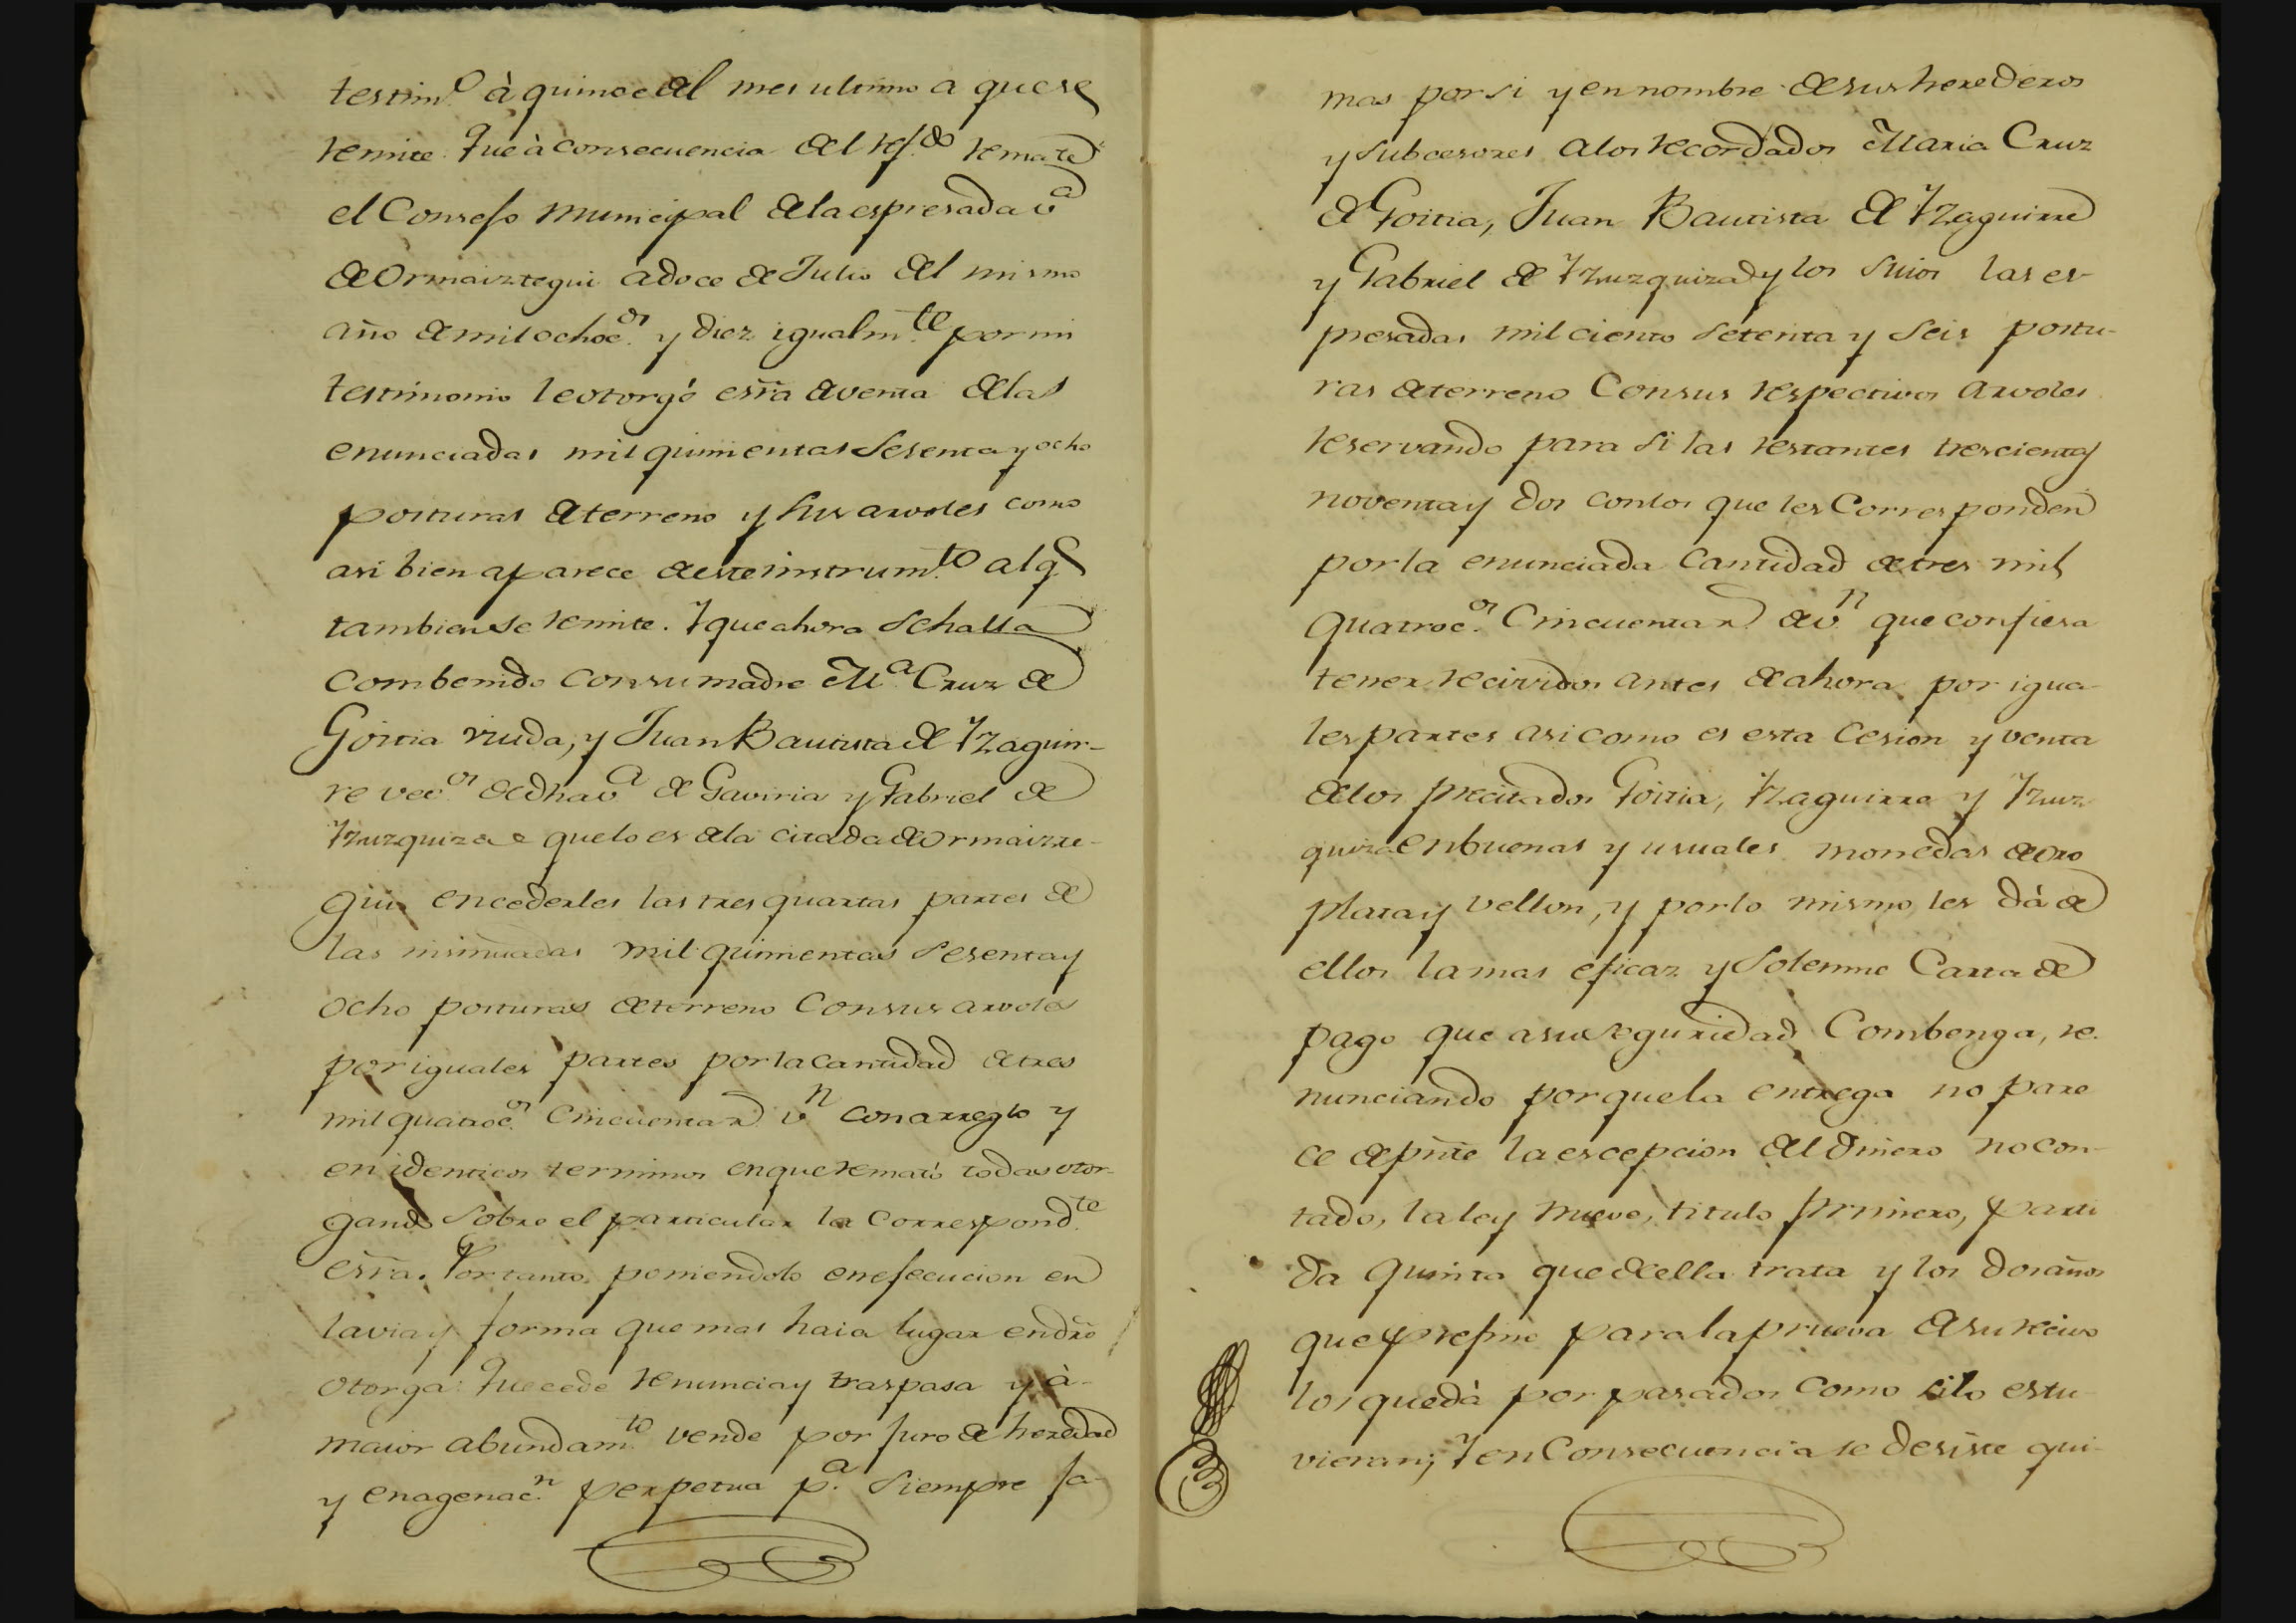 testim.º à quince del mes ultimo a que se
remite. Que à consecuencia del ref.do remate
el Consejo municipal de la espresada v.a
de Ormaiztegui a doce de Julio del mismo
año de mil ochoc.os y diez igualm.te por mi
testimonio le otorgó esr̃a de venta de las
enunciadas mil quinientas sesenta y ocho
posturas de terreno y sus arvoles como
asi bien aparece de este instrum.to al q.e
tambien se remite. Y que ahora se halla
combenido con su madre M.a Cruz de
Goitia viuda, y Juan Bautista de Yzaguir-
re vec.os de dha v.a de Gaviria y Gabriel de
Yzuzquiza e que lo es de la citada de Ormaizte-
gui en cederles las tres quartas partes de
las insinuadas mil quinientas sesenta y
ocho posturas de terreno con sus arvoles
por iguales partes por la cantidad de tres
mil quatroc.os cincuenta r.s v.n con arreglo y
en identicos terminos en que remató todas otor-
gando sobre el particular la correspond.te
esr̃a. Por tanto poniendolo en ejecucion en
la via y forma que mas haia lugar en dr̃o
otorga: Que cede renuncia y traspasa y à
maior abundam.to vende por juro de heredad
y enagenac.n perpetua p.a siempre ja-
mas por si y en nombre de sus herederos
y subcesores a los recordados Maria Cruz
de Goitia, Juan Bautista de Yzaguirre
y Gabriel de Yzuzquiza y los suios las es-
presadas mil ciento setenta y seis postu-
ras de terreno con sus respectivos arvoles
reservando para si las restantes trescientas
noventa y dos con los que les corresponden
por la enunciada cantidad de tres mil
quatroc.os cincuenta r.s de v.n que confiesa
tener recividos antes de ahora por igua-
les partes asi como es esta cesion y venta
de los precitados Goitia, Yzaguirre y Yzuz
quiza en buenas y usuales monedas de oro
plata y vellon, y por lo mismo les dà de
ellos la mas eficaz y solemne Carta de
pago que a su seguridad combenga, re-
nunciando por que la entrega no pare
ce de pñte la escepcion del dinero no con-
tado, la ley nueve, titulo primero, parti
da quinta que de ella trata y los dos años
que prefine para la prueva de su recivo
los que dà por pasados como si lo estu
vieran; Y en consecuencia se desiste qui-